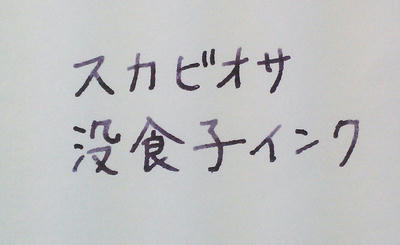 スカビオサ
没食子インク